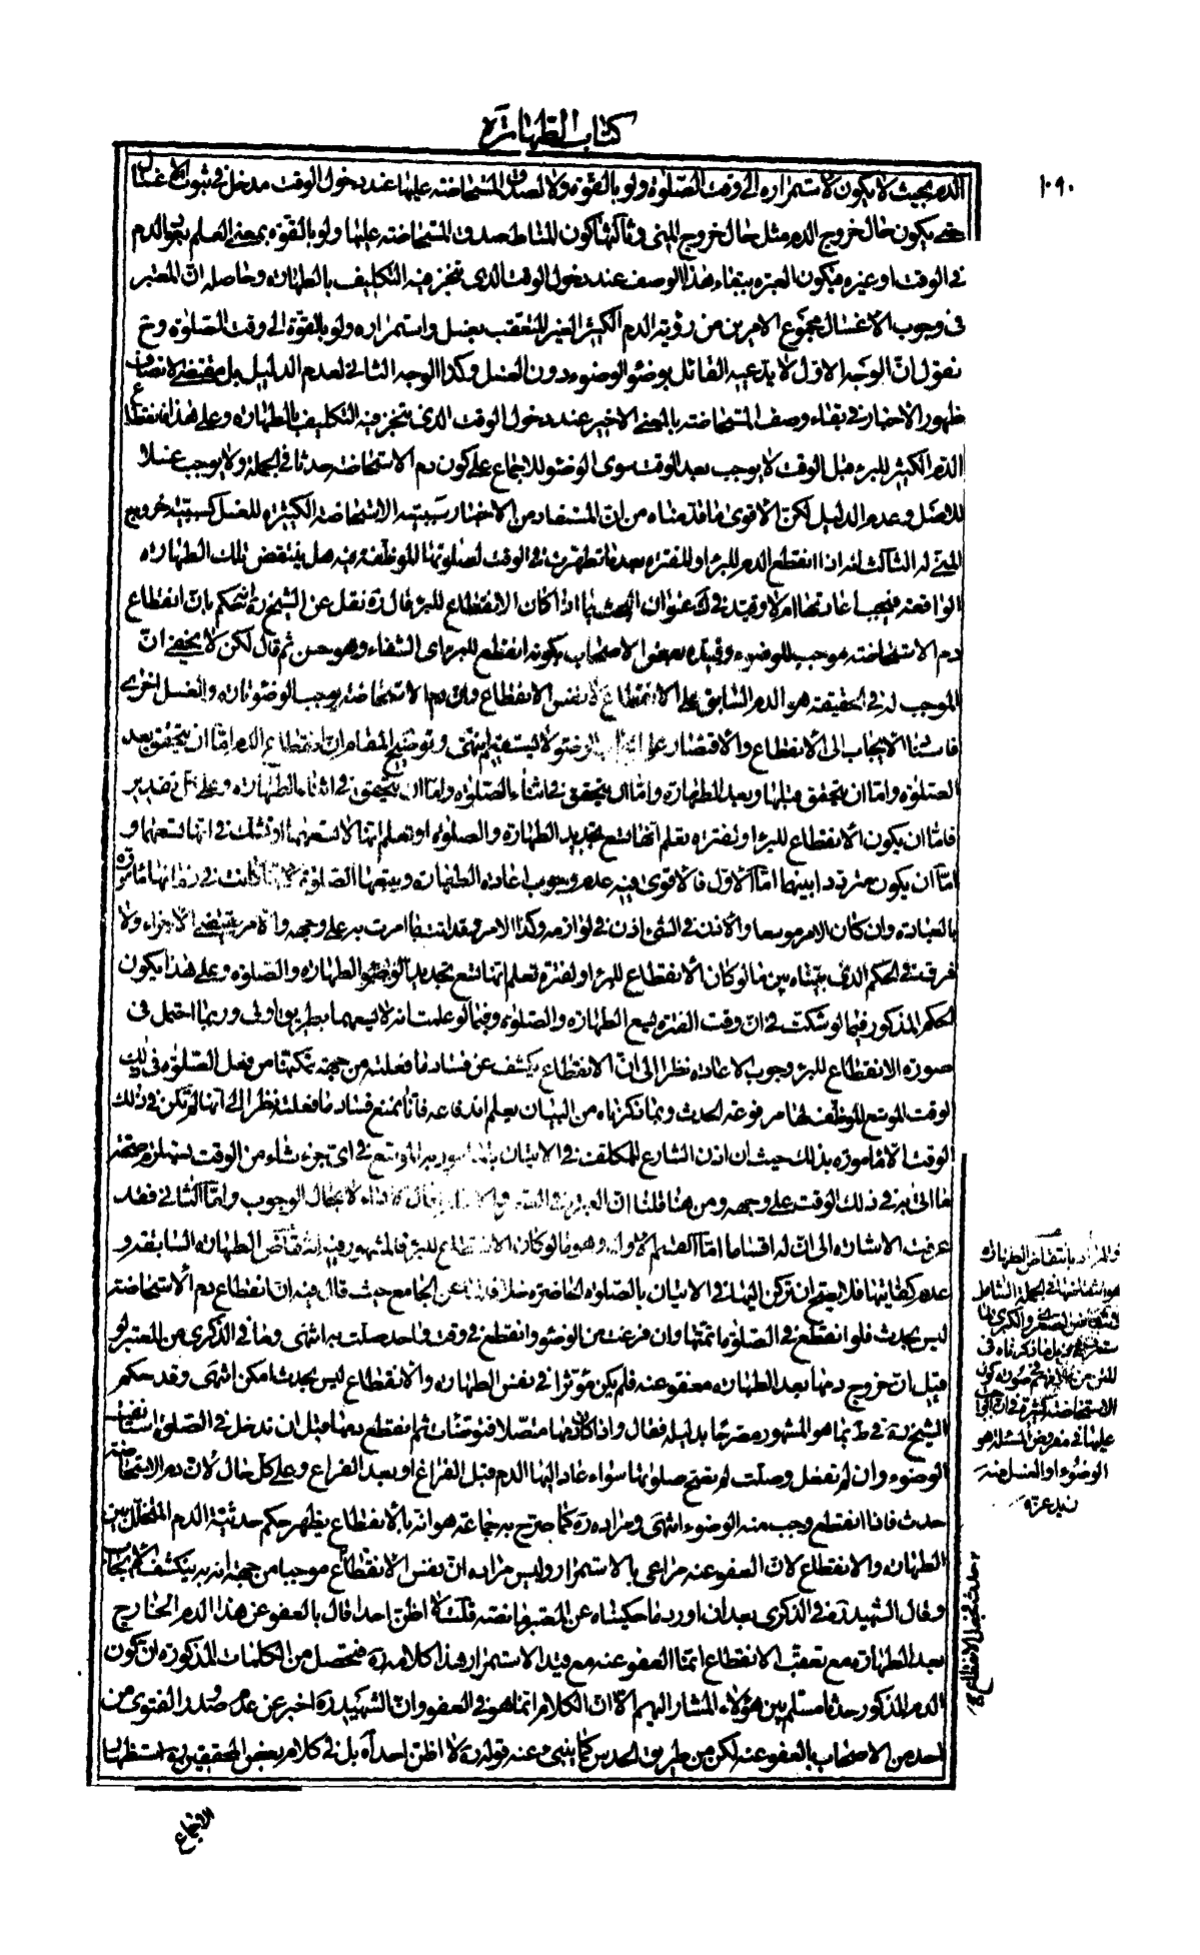 كتاب الطهارة
١٠٩٠
الدم بحيث لا يكون لاستمراره الى وقت الصلوة ولو بالقوة ولا لصدق المستحاضة عليها عند دخول الوقت مدخل في ثبوت الاغسال
حتى يكون حال خروج الدم مثل حال خروج المنى وثالثها كون المناط صدق المستحاضة عليها ولو بالقوة بمعنى العلم بعود الدم
في الوقت او غيره فيكون العبرة ببقاء هذا الوصف عند دخول الوقت الذي تنجز فيه التكليف بالطهارة وحاصله ان المعتبر
في وجوب الاغسال مجموع الامرين من رؤية الدم الكثير الغير المتعقب بغسل واستمراره ولو بالقوة الى وقت الصلوة وح
نقول ان الوجه الاول لا يدعيه القائل بوضو الوضوء دون الغسل وكذا الوجه الثاني لعدم الدليل بل مقتضى الانصاف
ظهور الاخبار في بقاء وصف المستحاضة بالمعنى الاخير عند دخول الوقت الذي يتنجز فيه التكليف بالطهارة وعلى هذا فانقطاع
الدم الكثير للبرء قبل الوقت لا يوجب بعد الوقت سوى الوضوء للاجماع على كون دم الاستحاضة حدثا في الجملة ولا يوجب غسلا
للاصل وعدم الدليل لكن الاقوى ما قدمناه من ان المستفاد من الاخبار سببية الاستحاضة الكثيرة للغسل كسببية خروج
المنى له الثالث انه اذا انقطع الدم للبرء او للفترة بعد ما تطهرت في الوقت لصلوتها الموظفة فيه هل ينتقض تلك الطهارة
الواقعة فيجب اعادتها ام لا وقيد في ك عنوان البحث بما اذا كان الانقطاع للبرء قال ره نقل عن الشيخ ره انه حكم بان انقطاع
دم الاستحاضة موجب للوضوء وقيده بعض الاصحاب بكونه انقطع للبرء اى الشفاء وهو حسن ثم قال لكن لا يخفى ان
الموجب له في الحقيقة هو الدم السابق على الانقطاع لا نفس الانقطاع وان دم الاستحاضة يوجب الوضوء تارة والغسل اخرى
فاسناد الايجاب الى الانقطاع والاقتصار على ايجاب الوضوء لا يستقيم انتهى وتوضيح المقام ان انقطاع الدم اما ان يتحقق بعد
الصلوة واما ان يتحقق قبلها وبعد الطهارة واما ان يتحقق في اثناء الصلوة واما ان يتحقق في اثناء الطهارة وعلى كل تقدير
فاما ان يكون الانقطاع للبرء او لفترة يعلم انها تسع تجديد الطهارة والصلوة او تعلم انها لا تسعهما او تشك في انها تسعهما و
اما ان يكون مترددا بينهما اما الاول فالاقوى فيه عدم وجوب اعادة الطهارة ويتبعها الصلوة لانها كانت في زمانها مامورة
بالعبادة وان كان الامر موسعا والاذن في الشئ اذن في لوازمه وكذا الامر وقد اتت بما امرت به على وجهه والامر يقتضى الاجزاء ولا
فرق في الحكم الذي بيناه بين ما لو كان الانقطاع للبرء او لفترة تعلم انها تسع تجديد الوضوء والطهارة والصلوة وعلى هذا يكون
الحكم المذكور فيما لو شكت في ان وقت الفترة يسع الطهارة والصلوة وفيما لو علمت انه لا يسعهما بطريق اولى وربما احتمل في
صورة الانقطاع للبرء وجوب الاعادة نظرا الى ان الانقطاع يكشف عن فساد ما فعلته من جهة تمكنها من فعل الصلوة في ذلك
الوقت الموسع الموظف لها مرفوعة الحدث وبما ذكرناه من البيان يعلم اندفاعه فانا نمنع فساد ما فعلته نظرا الى انها لم تكن في ذلك
الوقت الا مامورة بذلك حيث ان اذن الشارع للمكلف في الاتيان بالمامور به الموسع في اى جزء شاء من الوقت يستلزم صحة
ما اتى به في ذلك الوقت على وجهه ومن هنا قلنا ان العبرة في القصر والاتمام بحال الاداء لا بحال الوجوب واما الثاني فقد
عرفت الاشارة الى ان له اقساما اما القسم الاول وهو ما لو كان الانقطاع للبرء فالمشهور فيه انتقاض الطهارة السابقة و
عدم كفايتها فلا يصح ان تركن اليها في الاتيان بالصلوة الحاضرة خلافا لما عن الجامع حيث قال فيه ان انقطاع دم الاستحاضة
ليس بحدث فلو انقطع في الصلوة اتمتها وان فرغت من الوضوء وانقطع في وقت واحد صلت به انتهى وما في الذكرى عن المعتبر لو
قيل ان خروج دمها بعد الطهارة معفو عنه فلم يكن مؤثرا في نقض الطهارة والانقطاع ليس بحدث امكن انتهى وقد حكم
الشيخ ره في ط بما هو المشهور مصرحا بدليله فقال واذا كان دمها متصلا فتوضأت ثم انقطع دمها قبل ان تدخل في الصلوة استأنفت
الوضوء وان لم تفعل وصلت لم تصح صلوتها سواء عاد اليها الدم قبل الفراغ او بعد الفراغ وعلى كل حال لان دم الاستحاضة
حدث فاذا انقطع وجب منه الوضوء انتهى ومراده ره كما صرح به جماعة هو انه بالانقطاع يظهر حكم حدثية الدم المتخلل بين
الطهارة والانقطاع لان العفو عنه مراعى بالاستمرار وليس مراده ان نفس الانقطاع موجبا من جهة انه به ينكشف الايجاب
وقال الشهيد ره في الذكرى بعد ان اورد ما حكيناه عن المعتبر ما نصه قلت لا اظن احدا قال بالعفو عن هذا الدم الخارج
بعد الطهارة مع تعقب الانقطاع انما العفو عنه مع قيد الاستمرار هذا كلامه ره فتحصل من الكلمات المذكورة ان كون
الدم المذكور حدثا مسلم بين هؤلاء المشار اليهم الا ان الكلام انما هو في العفو وان الشهيد ره اخبر عن عدم صدور الفتوى من
احد من الاصحاب بالعفو عنه لكن من طريق الحدس كما ينبئ عنه قوله ره لا اظن احدا آه بل في كلام بعض المحققين ره استظهار
الاجماع
والمراد بانتقاض الطهارة
هو انتقاضها في الجملة الشامل
لانتقاض الصغرى والكبرى لما
ستعرفه
المتن من
الاستحاضة كثيرة في ان الواجب
عليها في مفروض المسئلة هو
الوضوء او الغسل منه